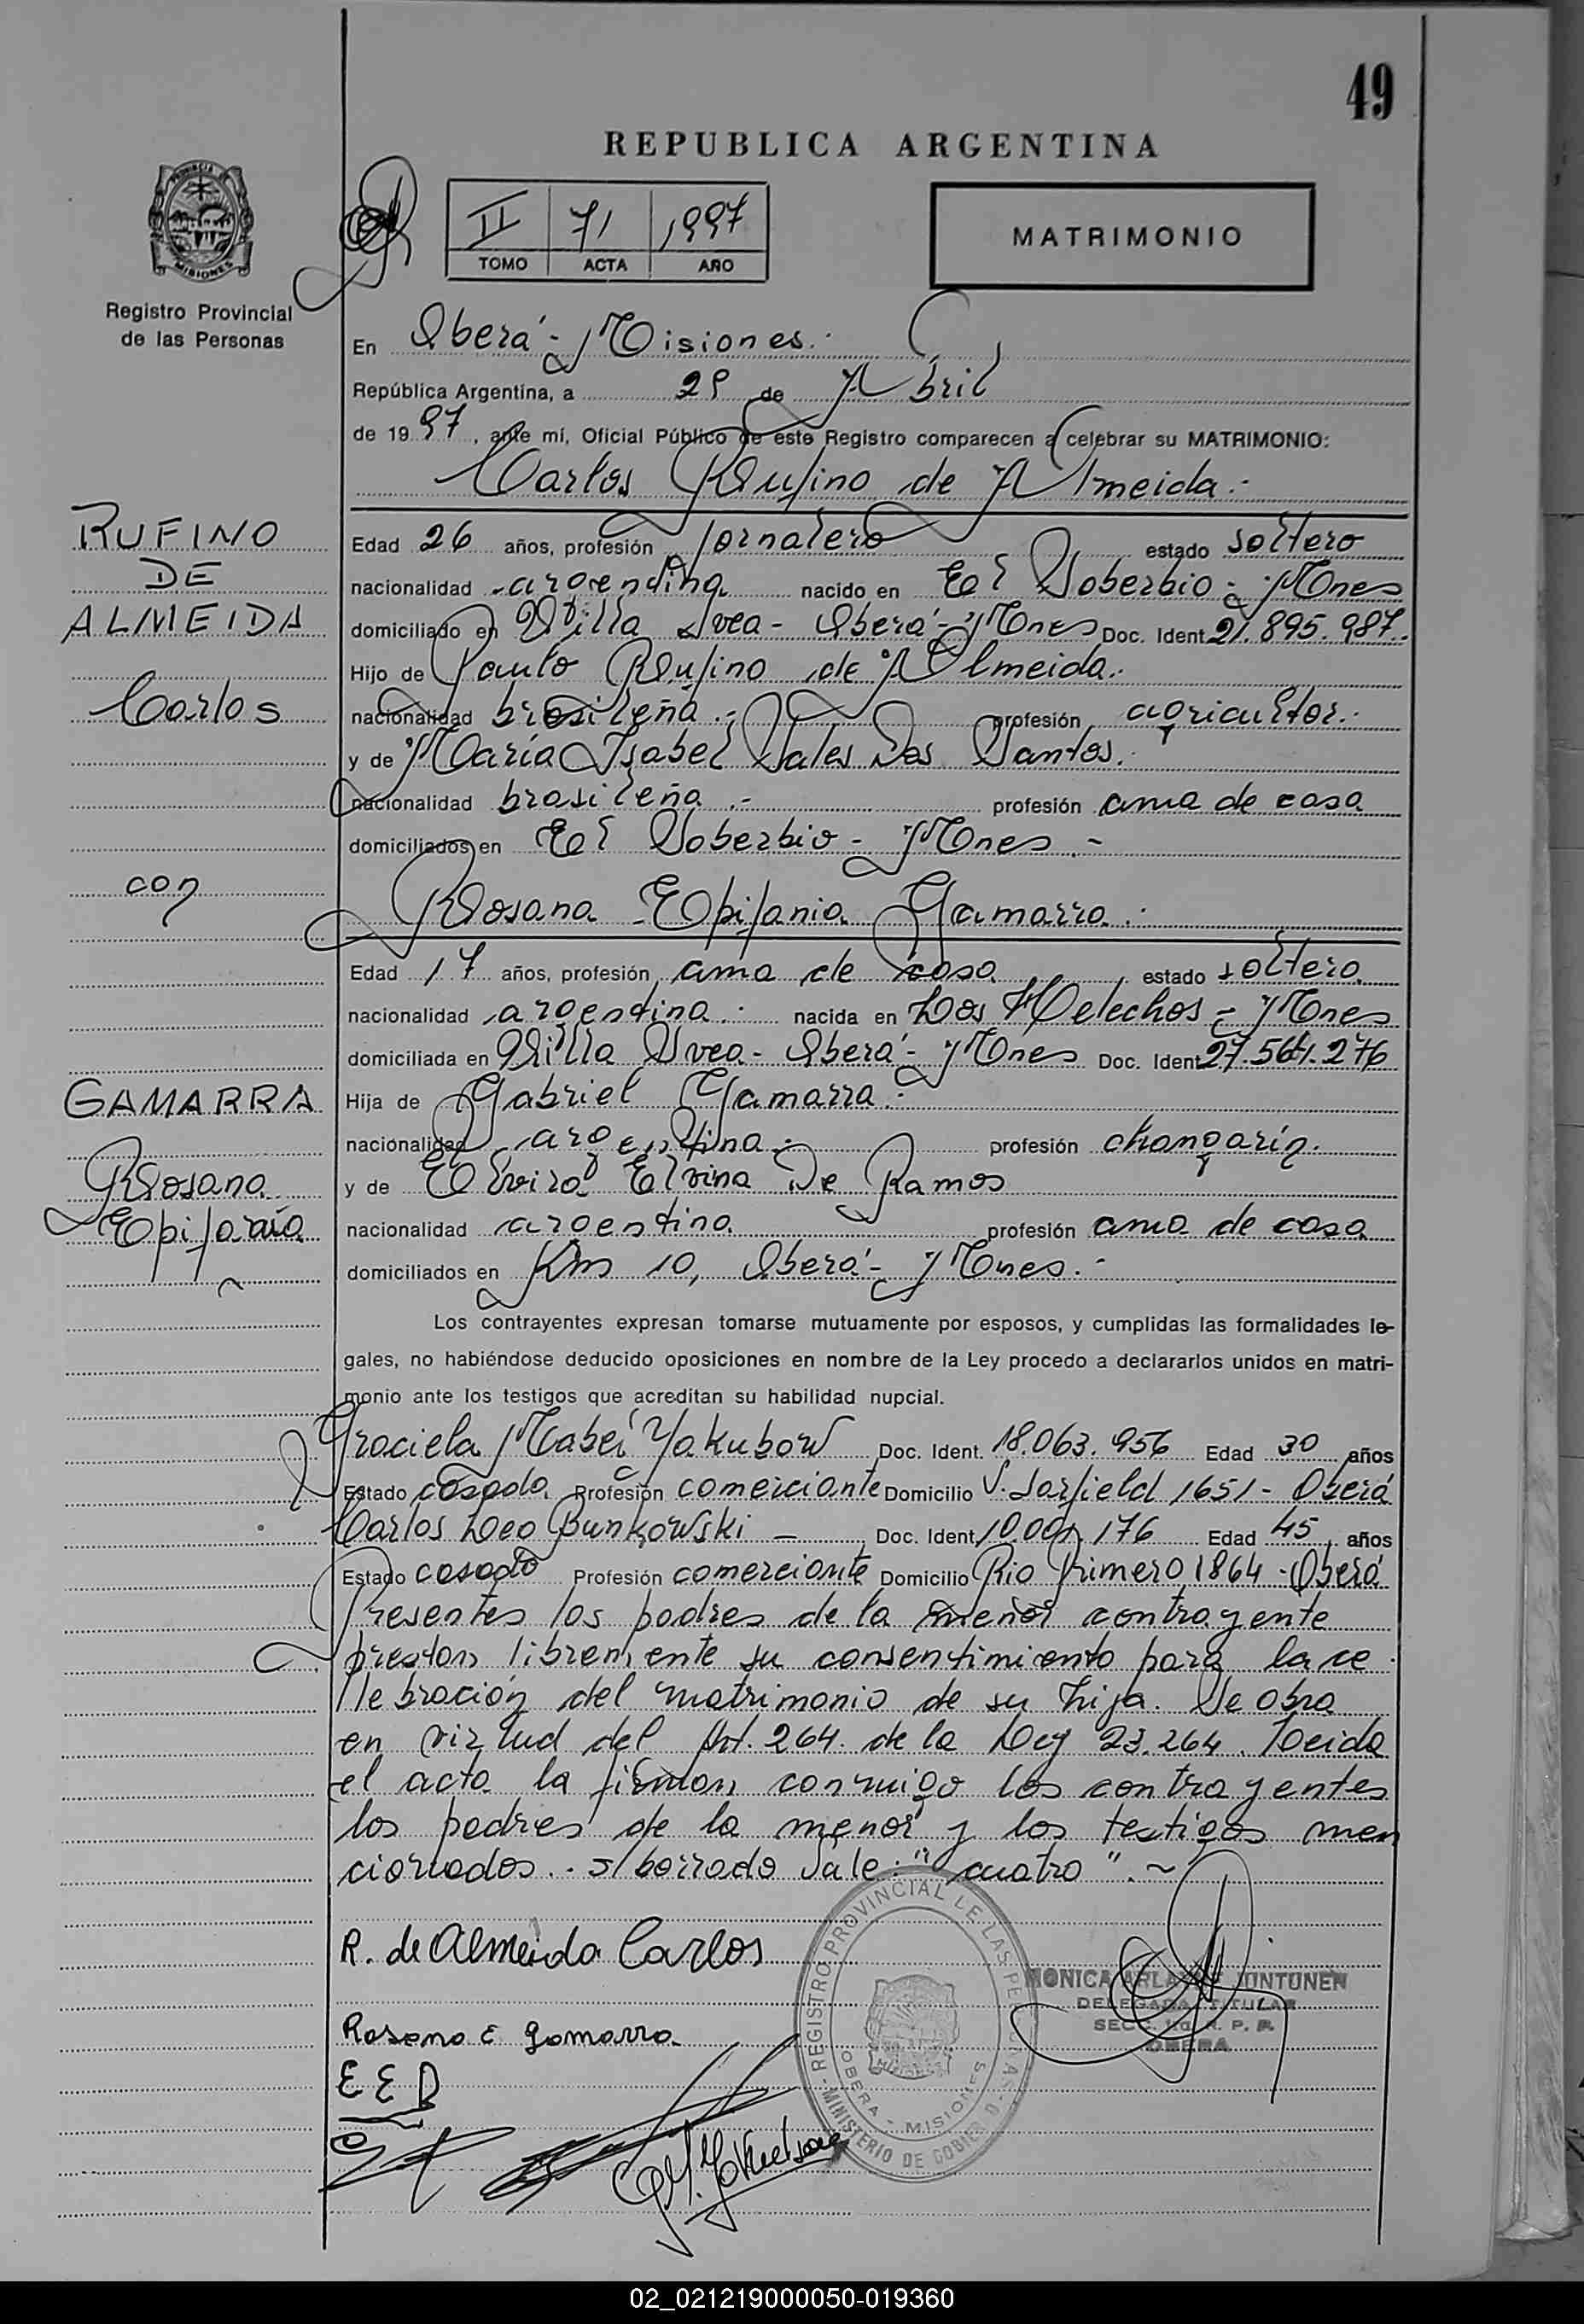 49
REPUBLICA ARGENTINA
PROVINCIA DE
MISIONES
Registro Provincial
de las Personas
II 71 1997
TOMO ACTA AÑO
MATRIMONIO
En Oberá - Misiones.-
República Argentina, a 29 de Abril
de 1997, ante mí, Oficial Público de este Registro comparecen a celebrar su MATRIMONIO:
Carlos Rufino de Almeida.-
RUFINO
DE
ALMEIDA
Carlos
con
GAMARRA
Rosana
Epifania
Edad 26 años, profesión jornalero estado soltero
nacionalidad argentina nacido en El Soberbio - Mnes
domiciliado en Villa Svea - Oberá - Mnes Doc. Ident. 21.895.987.-
Hijo de Paulo Rufino de Almeida.-
nacionalidad brasileña.- profesión agricultor.-
y de María Isabel Sales Dos Santos.-
nacionalidad brasileña.- profesión ama de casa
domiciliados en El Soberbio - Mnes.-
Rosana Epifania Gamarra.-
Edad 17 años, profesión ama de casa estado soltera
nacionalidad argentina.- nacida en Los Helechos - Mnes
domiciliada en Villa Svea - Oberá - Mnes Doc. Ident. 27.564.276
Hija de Gabriel Gamarra.-
nacionalidad argentina.- profesión changarín.
y de Elvira Elvina De Ramos
nacionalidad argentina profesión ama de casa
domiciliados en Km 10, Oberá - Mnes.-
Los contrayentes expresan tomarse mutuamente por esposos, y cumplidas las formalidades le-
gales, no habiéndose deducido oposiciones en nombre de la Ley procedo a declararlos unidos en matri-
monio ante los testigos que acreditan su habilidad nupcial.
Graciela Mabel Yakubow Doc. Ident. 18.063.956 Edad 30 años
Estado casada Profesión comerciante Domicilio V. Sarfield 1651 - Oberá
Carlos Leo Bunkowski - Doc. Ident. 10.001.176 Edad 45 años
Estado casado Profesión comerciante Domicilio Rio Primero 1864 - Oberá
Presentes los padres de la menor contrayente
prestan libremente su consentimiento para la ce
lebración del matrimonio de su hija. Se obra
en virtud del Art. 264 de la Ley 23.264. Leída
el acta la firman conmigo los contrayentes
los padres de la menor y los testigos men
cionados.- s/borrado Vale: "cuatro".~
R. de Almeida Carlos
Rosana E Gamarra
E E D
REGISTRO PROVINCIAL DE LAS PERSONAS
MINISTERIO DE GOBIERNO
OBERA - MISIONES
MONICA
DELEGADA TITULAR
R. P. P.
OBERA
02_021219000050-019360